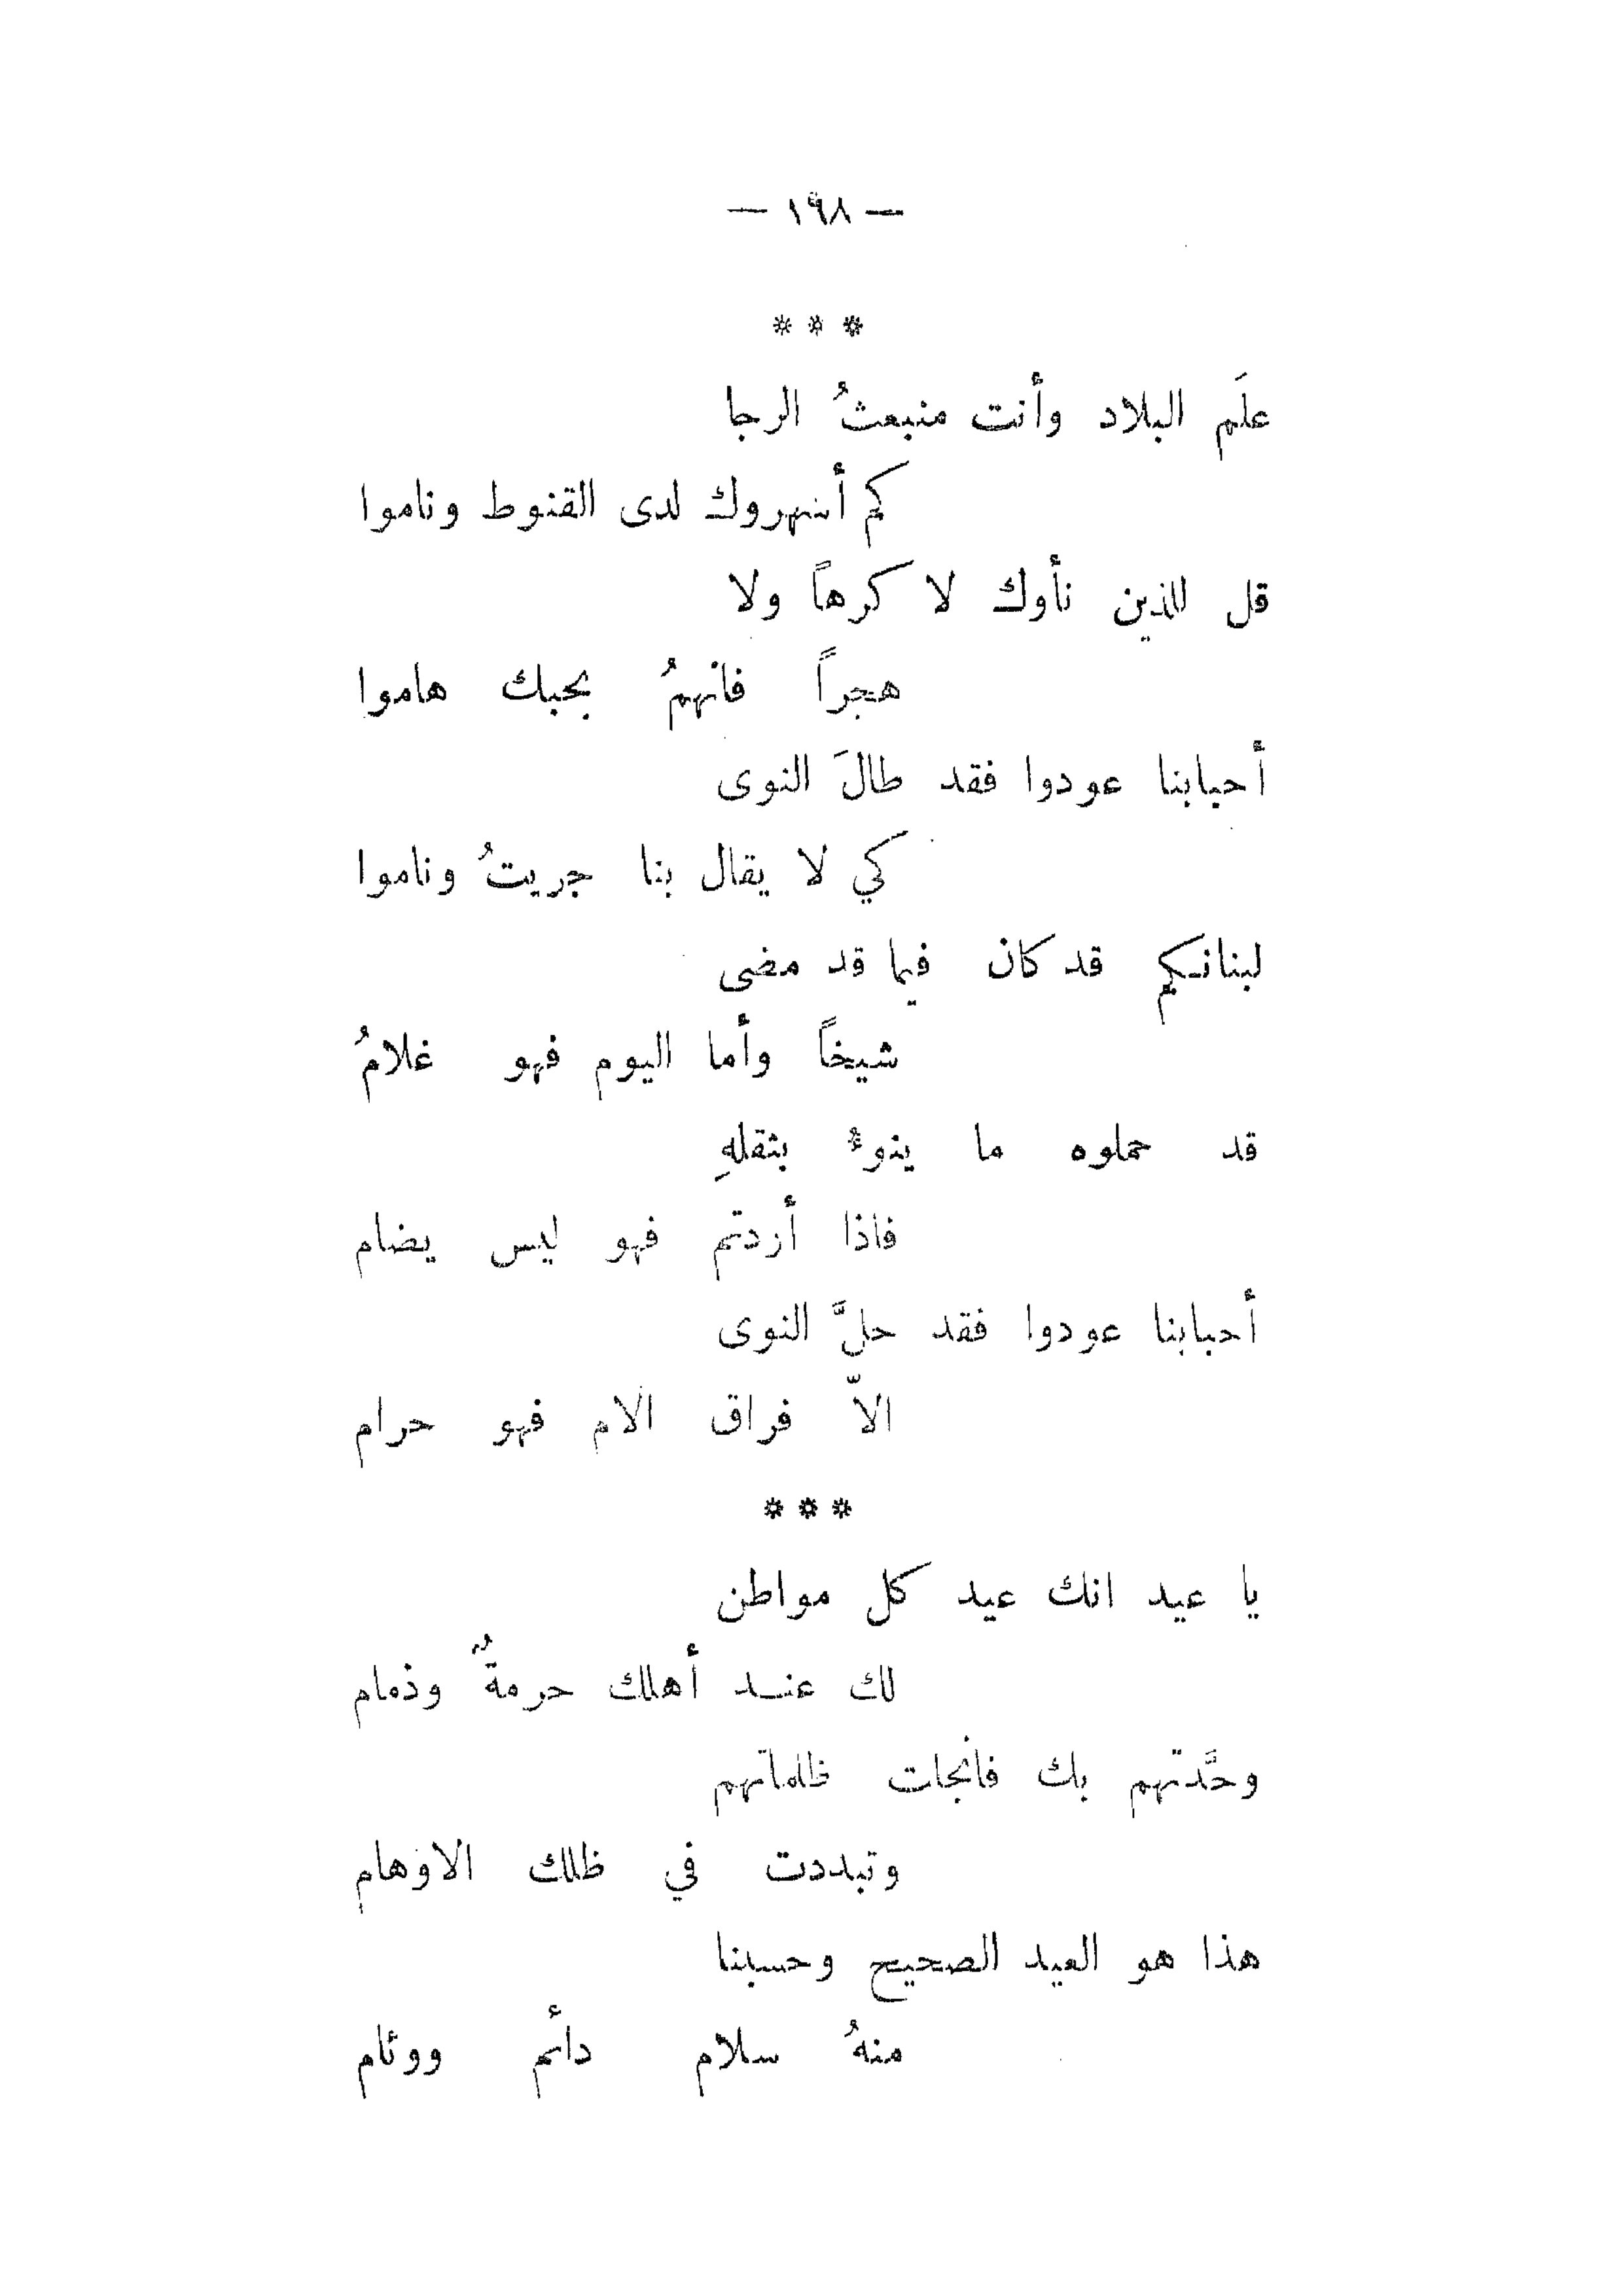 — ١٩٨ —
* * *
علَم البلاد وأنت منبعثُ الرجا
كم أسهروك لدى القنوط وناموا
قل للذين نأوك لا كرهاً ولا
هجراً فانهمُ بحبك هاموا
أحبابنا عودوا فقد طالَ النوى
كي لا يقال بنا جريتُ وناموا
لبنانكم قد كان فيما قد مضى
شيخاً وأما اليوم فهو غلامُ
قد حملوه ما ينوءُ بثقلهِ
فاذا أردتم فهو ليس يضام
أحبابنا عودوا فقد حلَّ النوى
الاّ فراق الام فهو حرام
* * *
يا عيد انك عيد كل مواطن
لك عند أهلك حرمةٌ وذمام
وحَّدتهم بك فانجلت ظلماتهم
وتبددت في ظلك الاوهام
هذا هو العيد الصحيح وحسبنا
منهُ سلام دائم ووئام